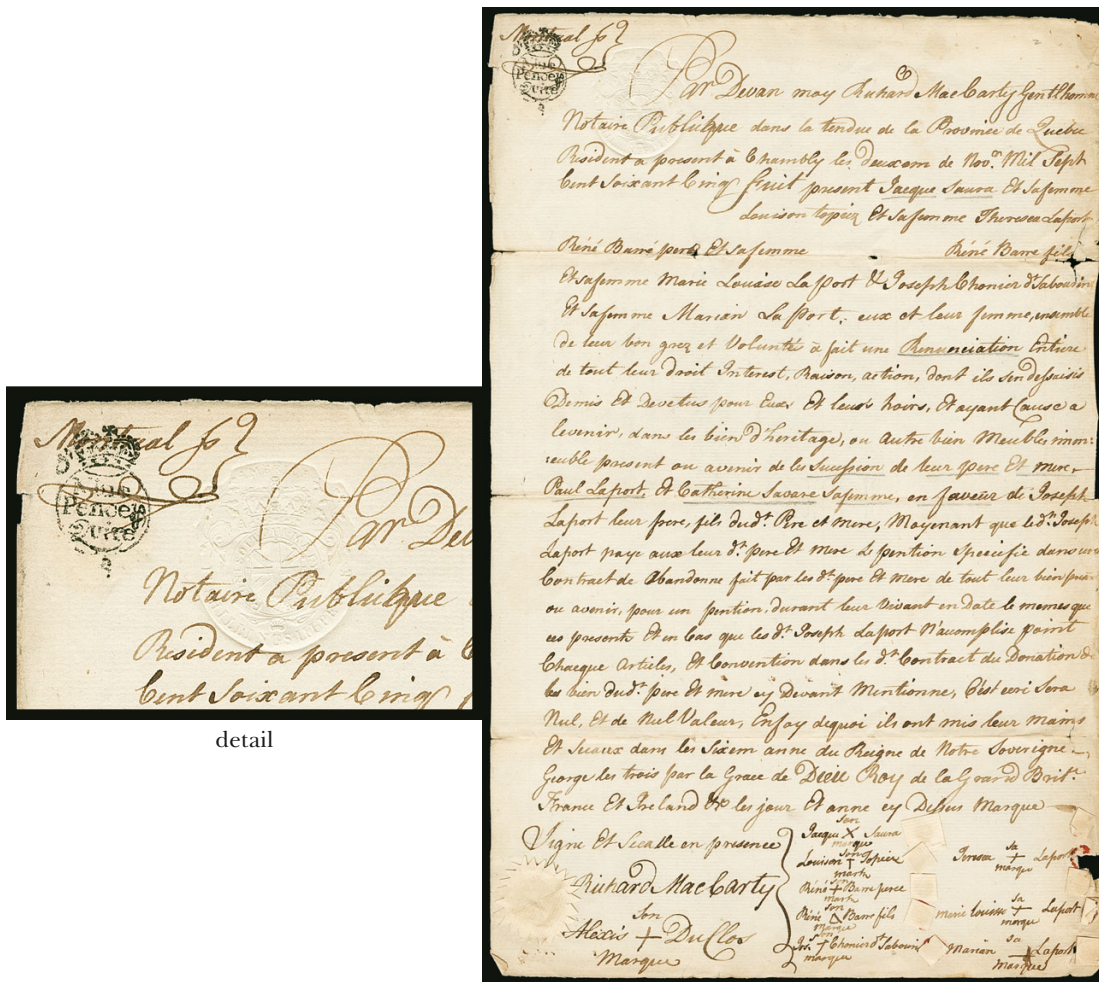 Montreal ss
Nine
Pence
Quire
Par Devan moy Richard MacCarty Gentlhomme
Notaire Publikque dans la tendue de la Province de Quebec
Resident a present à Chambly les deuxem de Nov. Mil Sept
Cent Soixant Cinq fuit present Jacque Saura Et safemme
Louison topeir Et safemme Theresea Laport
Réné Barré pere Et safemme Réné Barre fils
Et safemme Marie Louise La port & Joseph Chonier dt Sabourin
Et safemme Marian La port, eux et leur femme, ensemble
de leur bon grez et Volunté à fait une Renunciation Entiere
de tout leur droit Interest, Raison, action, dont ils sen dessaisis
Demis Et Devetus pour Eux, Et leurs hoirs, Et ayant Cause a
levenir, dans les bien d'heritage, ou autre bien Meubles imm:
:euble present ou avenir de les Sucession de leur pere Et mere,
Paul Laport, et Catherine Savare Safemme, en faveur de Joseph
Laport leur frere, fils dudt. Pre et mere, Moyenant que ledt. Joseph
Laport paye aux leur dt. pere Et mere le pention Specifie dans un
Contract de Abandonne fait par les dt pere Et mere de tout leur bien
ou avenir, pour un pention, durant leur Vivant en Date le memes que
ces presents Et en Cas que les dt. Joseph Laport N'acomplise point
Chaeque Articles, Et Convention dans les dt. Contract de Donation de
les bien dudt. pere Et mere cy Devant Mentionne, C'est ceci Sera
Nul, Et de Nul Valeur, En foy dequoi ils ont mis leur mains
Et Sceaux dans les Sixem anne du Reigne de Notre Soverigne
George les trois par la Grace de Dieu Roy de la Grand Brit.
France Et Ireland &c les jour Et anne cy Dessus Marque
Signe Et Sealle en presence
Richard MacCarty
Alexis son + DuClos
Marque
Jacque son X Saura
marque
Louison son + Topeir
mark
Réné son + Barre pere
mark
Réné son Barre fils
marque
Jos. son + Chonier dt Sabourin
marque
Teresea sa + Laport
marque
marie louise sa + Laport
marque
Marian sa + Laport
marque
Montreal ss
Nine
Pence
Quire
Par Dev
Notaire Publikque
Resident a present à C
Cent Soixant Cinq f
detail